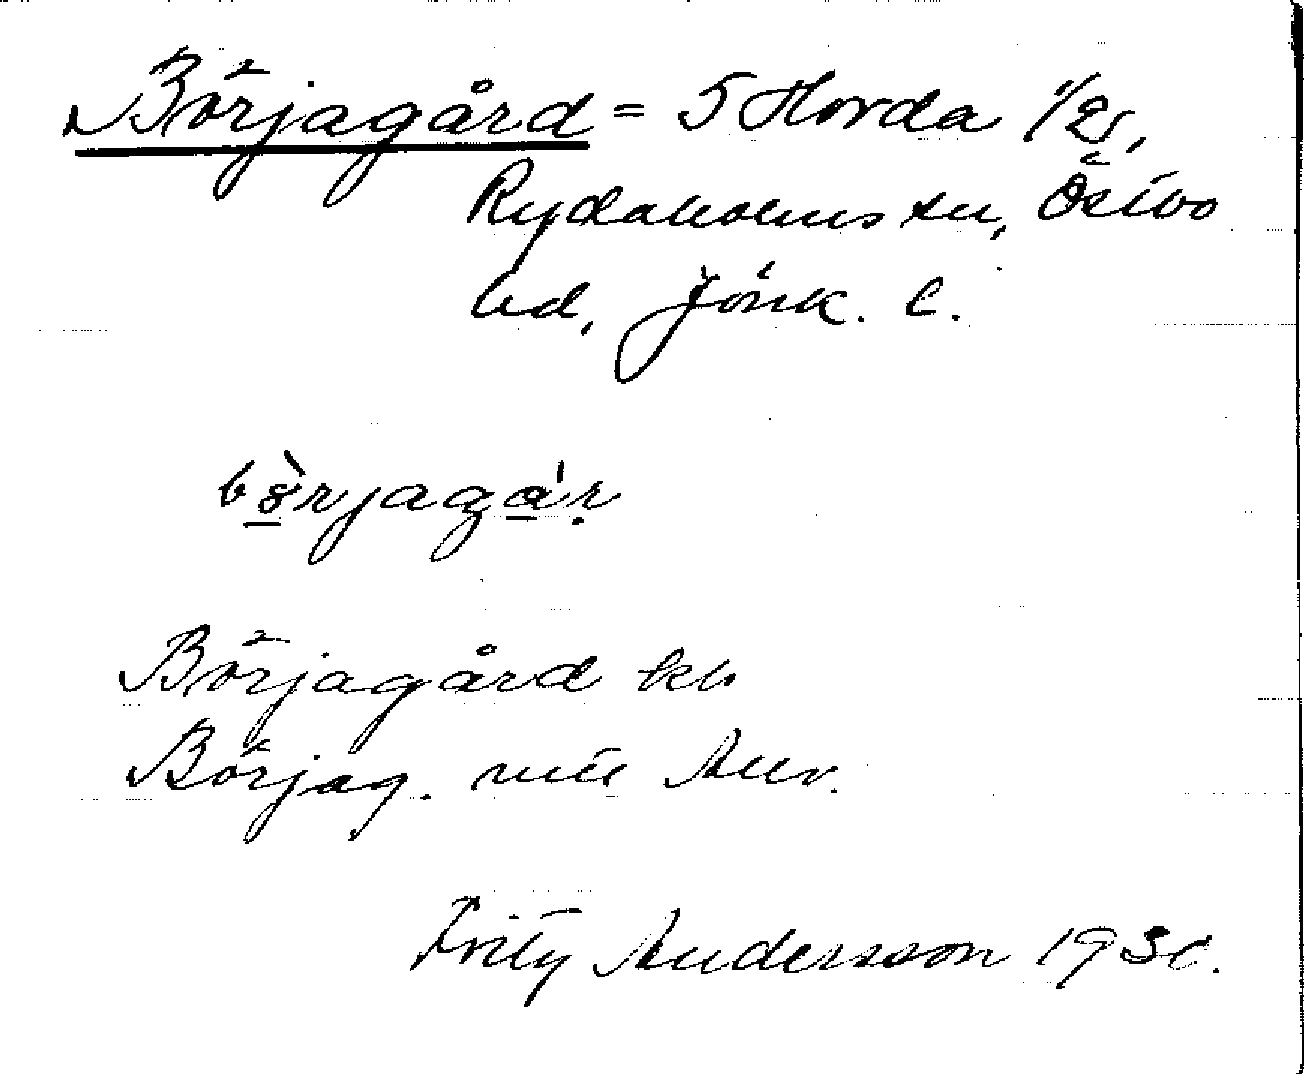 Börjagård = 5 Horda 1/2,
Rydaholms sn, Östbo
hd, Jönk. l.
Börjagård kb
Börjag.
Fritz Andersson 193